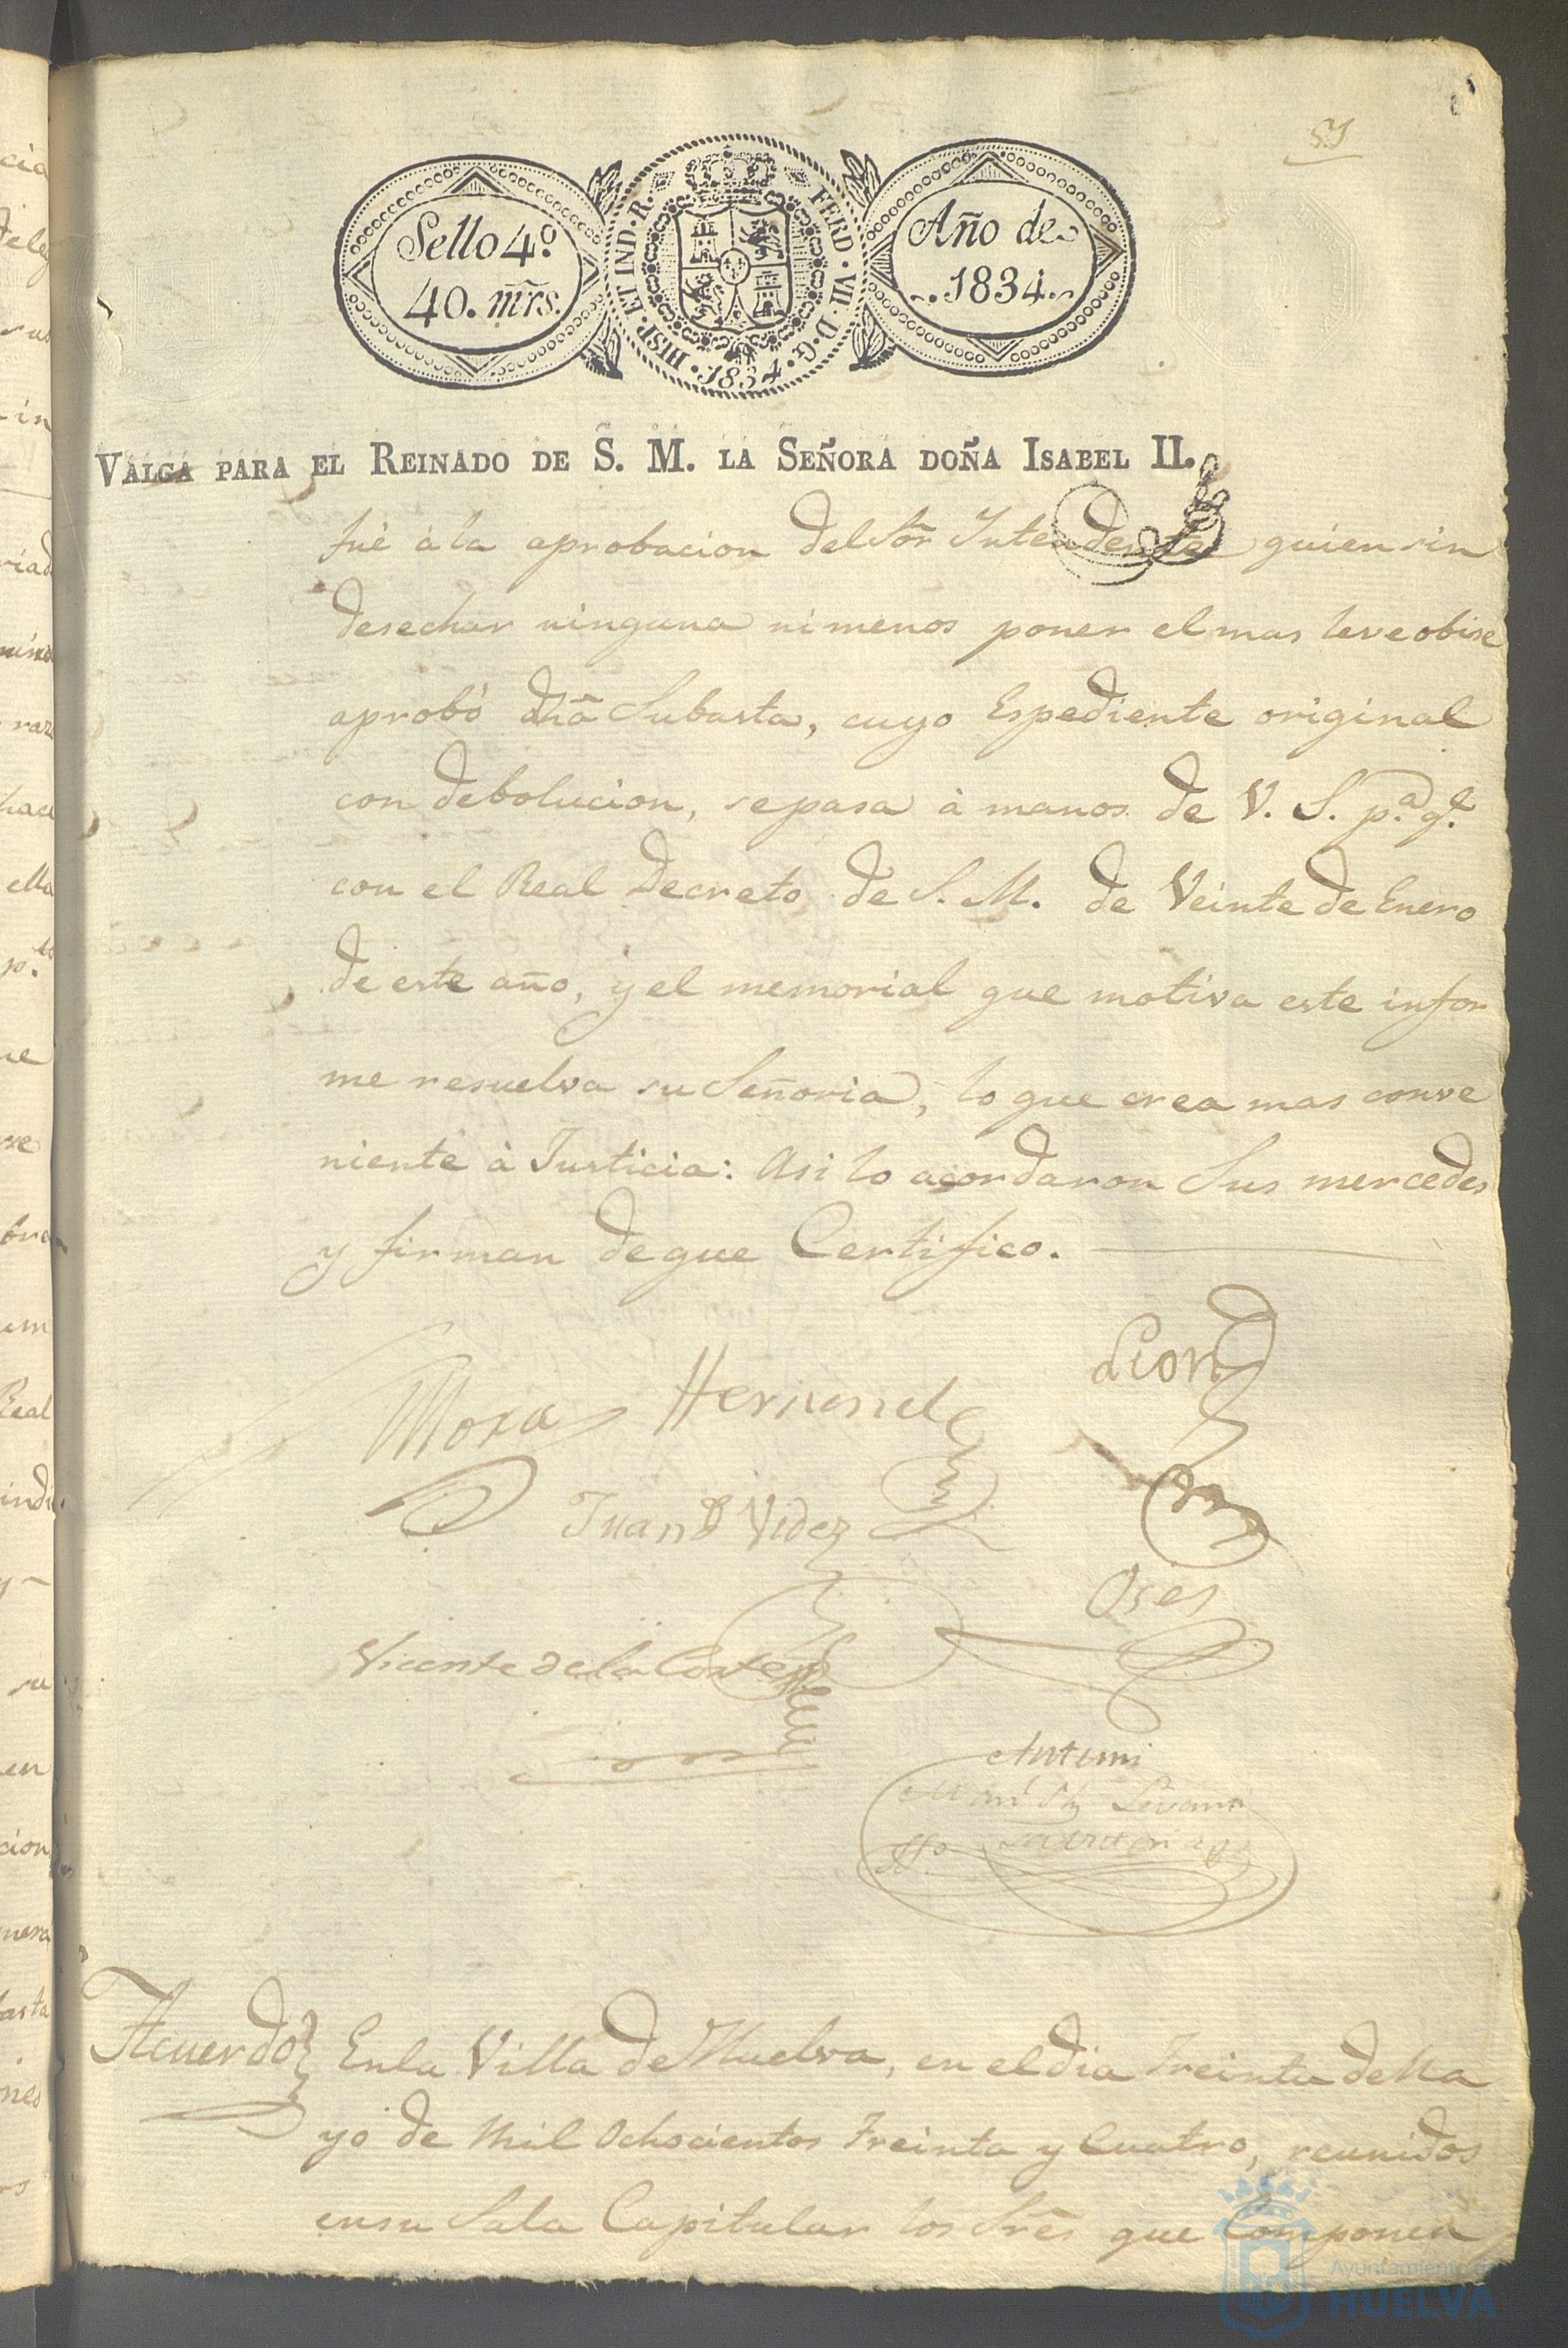 57
Sello 4º
40. mrs.
HISP. ET IND. R.
FERD. VII. D. G.
1834.
Año de
1834.
VALGA PARA EL REINADO DE S. M. LA SEÑORA DOÑA ISABEL II.
fué á la aprobacion del Sôr Intendente quien sin
desechar ninguna ni menos poner el mas leve obice
aprobó dhã Subasta, cuyo Espediente original
con debolucion, se pasa á manos de V. S. p.ª q.e
con el Real Decreto de S. M. de Veinte de Enero
de este año, y el memorial que motiva este infor
me resuelva su Señoria, lo que crea mas conve
niente á Justicia: Asi lo acordaron Sus mercedes
y firman de que Certifico.
Leon
Mora
Hernand
Juan Videz
Oses
Vicente de la Corte
Antemi
Acuerdo
En la Villa de Huelva, en el dia treinta de Ma
yo de Mil Ochocientos treinta y Cuatro, reunidos
en su Sala Capitular los Srẽs que Componen
Ayuntamiento de
HUELVA